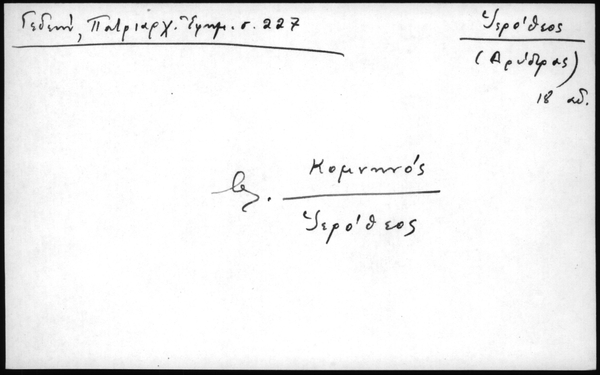 Γεδεών, Πατριαρχ. Ἐφημ. σ. 227
Ἱερόθεος
(Δρύστρας)
18 αἰ.
βλ. Κομνηνός
Ἱερόθεος